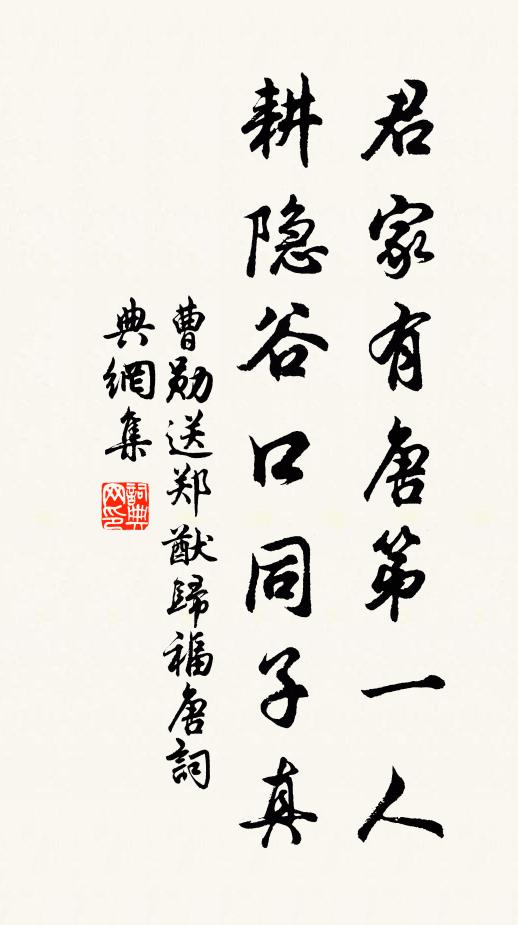 君家有唐第一人
耕隐谷口同子真
曹勋送郑猷歸福唐詞
典網集
詞典网印